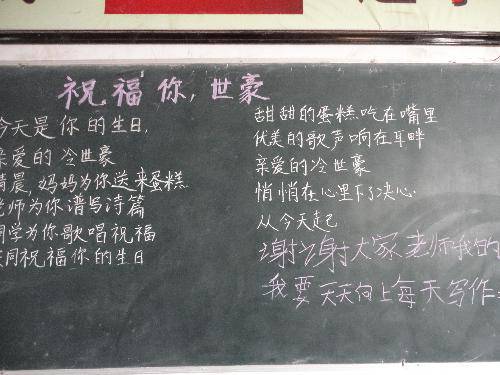 祝福你,世豪
今天是你的生日,
亲爱的冷世豪
清晨,妈妈为你送来蛋糕
老师为你谱写诗篇
同学为你歌唱祝福
共同祝福你的生日
甜甜的蛋糕吃在嘴里
优美的歌声响在耳畔
亲爱的冷世豪
悄悄在心里下了决心
从今天起
谢谢大家老师我的
我要天天向上每天写作